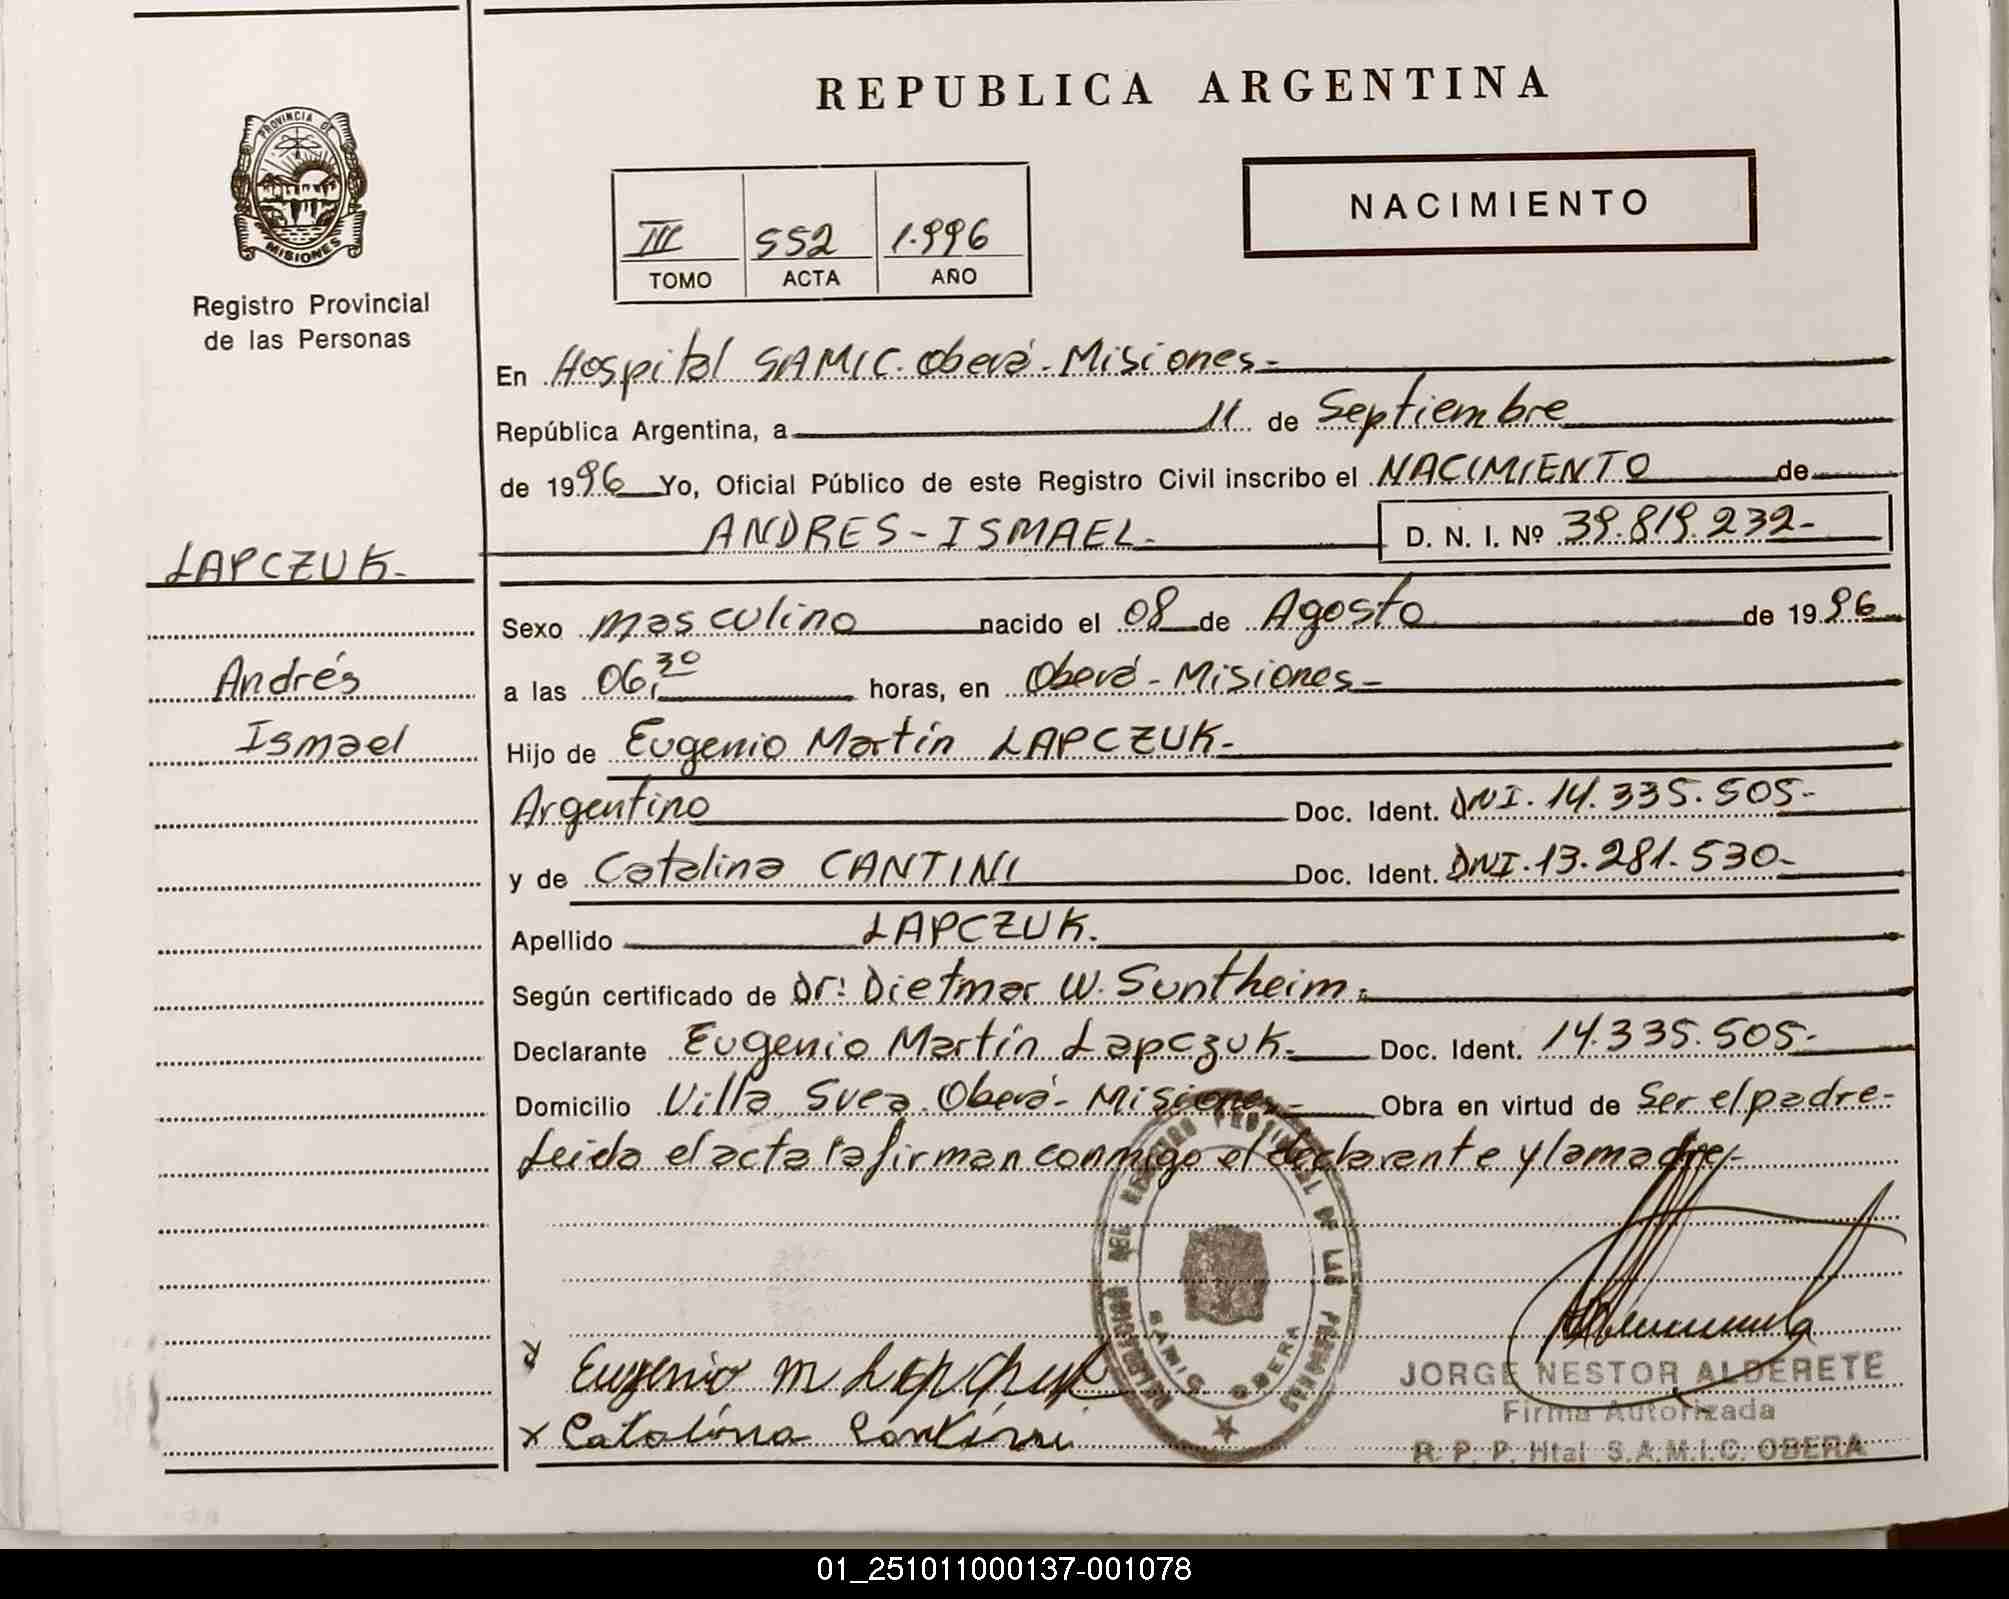 REPUBLICA ARGENTINA
PROVINCIA DE
MISIONES
Registro Provincial
de las Personas
NACIMIENTO
III 552 1.996
TOMO ACTA AÑO
En Hospital SAMIC. Oberá - Misiones-
República Argentina, a 11 de Septiembre
de 1996 Yo, Oficial Público de este Registro Civil inscribo el NACIMIENTO de
ANDRES - ISMAEL. D. N. I. Nº 39.819.232-
LAPCZUK-
Sexo masculino nacido el 08 de Agosto de 1996
Andrés
a las 06,30 horas, en Oberá - Misiones-
Ismael
Hijo de Eugenio Martín LAPCZUK-
Argentino Doc. Ident. DNI. 14.335.505-
y de Catalina CANTINI Doc. Ident. DNI. 13.281.530-
Apellido LAPCZUK.
Según certificado de Dr: Dietmar W. Suntheim.
Declarante Eugenio Martín Lapczuk- Doc. Ident. 14.335.505-
Domicilio Villa Svea. Oberá - Misiones- Obra en virtud de Ser el padre-
Leida el acta la firman conmigo el declarante y la madre-
DELEGACION DEL REGISTRO PROVINCIAL DE LAS PERSONAS
SAMIC OBERA
x Eugenio M Lapczuk
x Catalina Cantini
JORGE NESTOR ALDERETE
Firma Autorizada
R. P. P. Htal S.A.M.I.C. OBERA
01_251011000137-001078